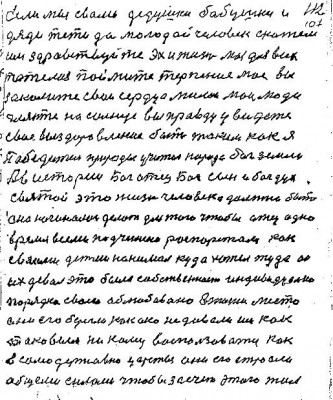 112
107
Если мы своим дедушки бабушки и
дяди тети да молодой человек скажем
им здравствуйте эх и жизнь мы для вас
поймите терпение мое вы
свои сердца милые мои люди
на солнце вы правду увидете
свое выздоровление быть таким как я
Победитель природы учитель народа бог земли
А в истории Бог отец Бог сын и бог дух
святой это жизнь человека должно быть
она начинали делать для того чтобы отец одно
время всеми подчинено распоряжал как
своими детми нанимал куда хотел туда он
их девал это было собственного индивидуально
порядка своим облюбовано в жизни место
они его брали как око не давали им как
таковым никому воспользоватся как
в самодержавно царстви они его строили
общими силами чтобы за счет этого жил